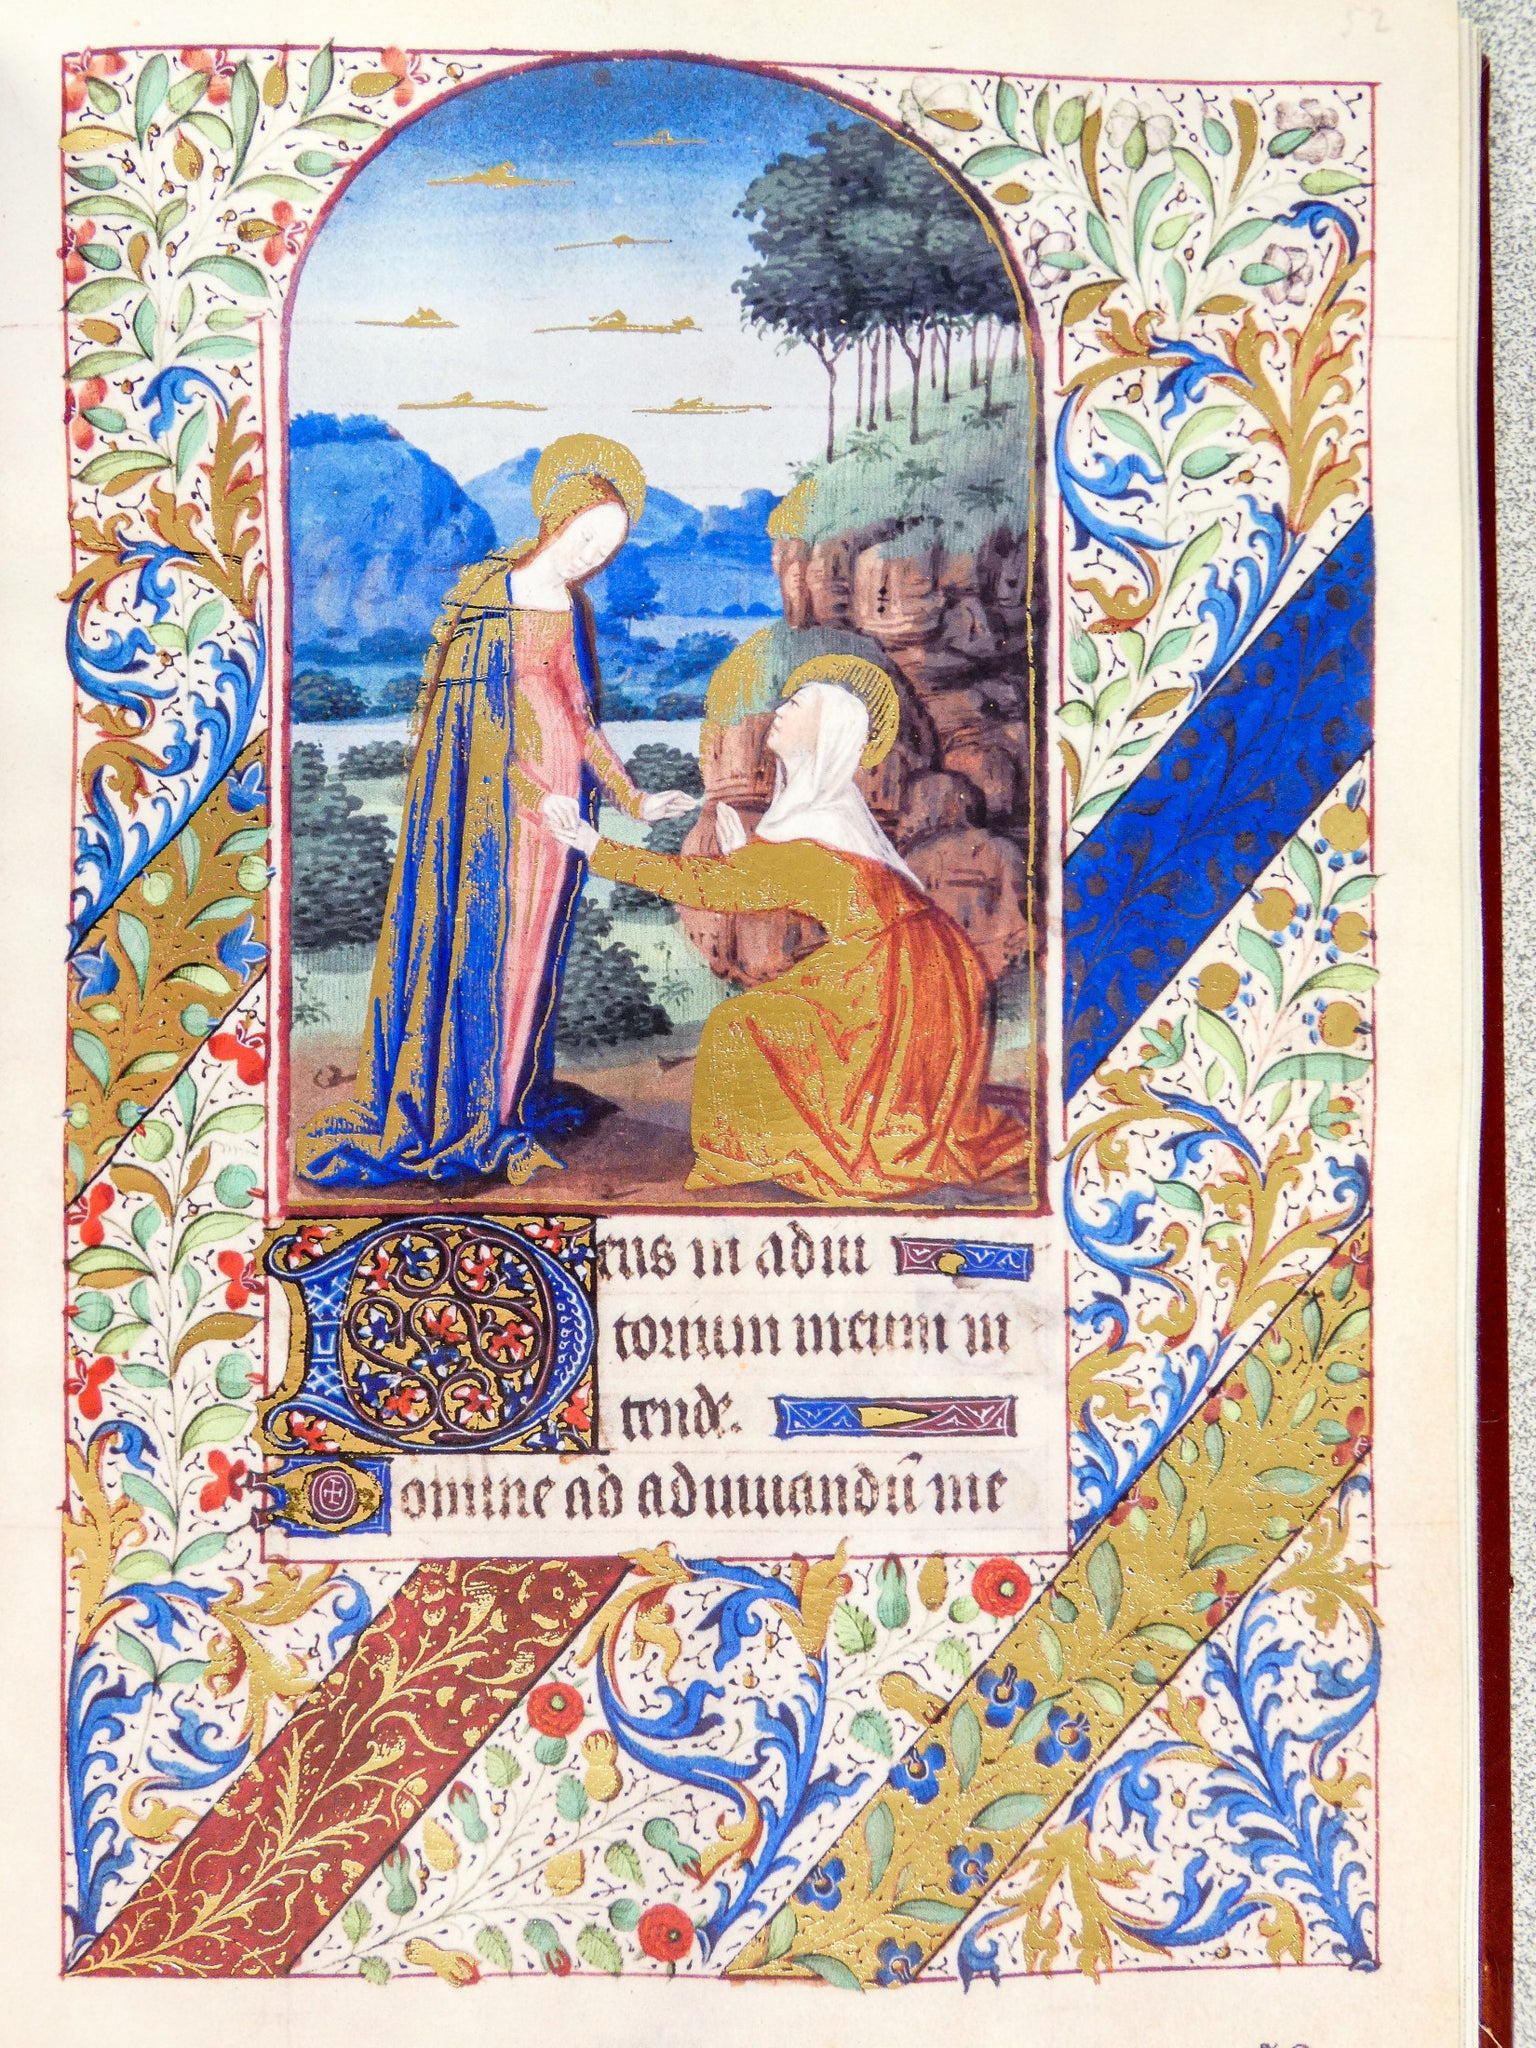 52
Deus in adiu
torium meum in
tende.
Domine ad adiuuandū me